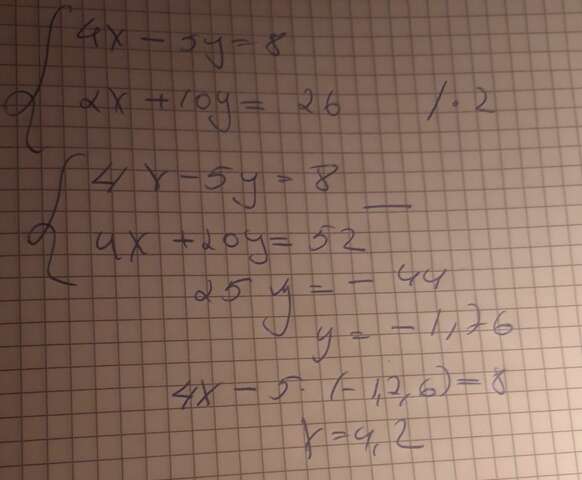 4x - 5y = 8
2x + 10y = 26 / · 2
4x - 5y = 8
4x + 20y = 52
25 y = - 44
y = - 1,76
4x - 5 · (-1,7,6) = 8
x = 4,2